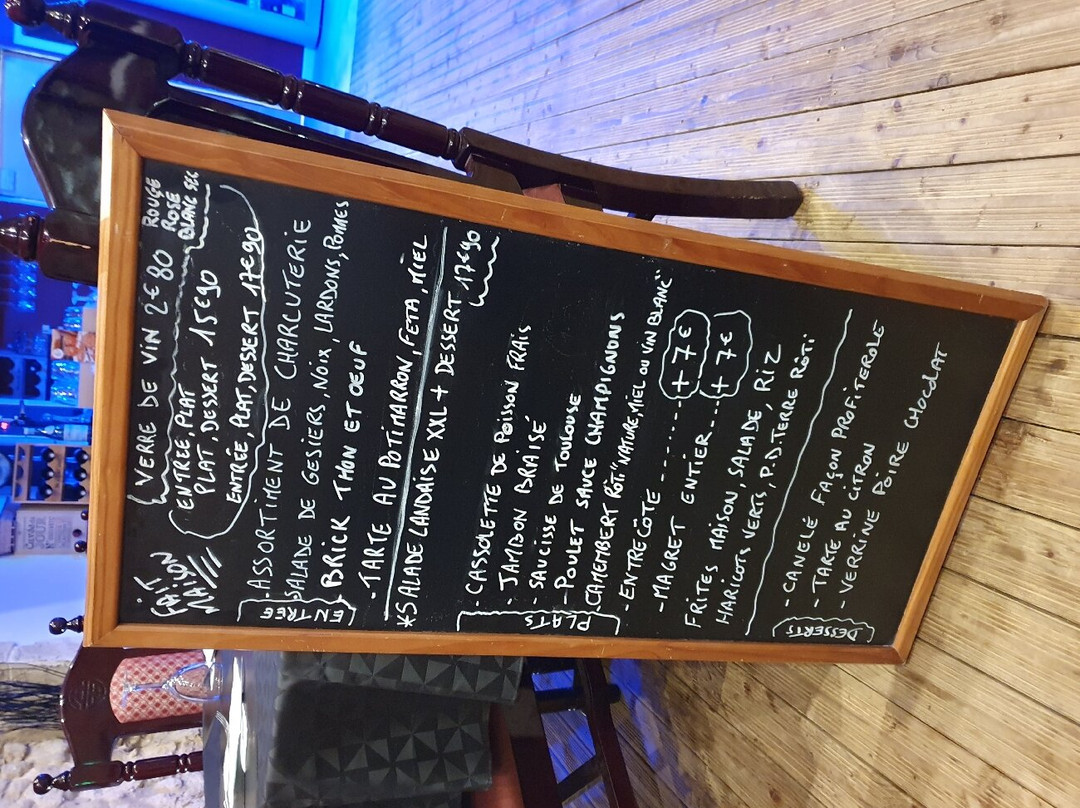 FAIT
MAISON
VERRE DE VIN 2€80
ROUGE
ROSÉ
BLANC SEC
ENTREE PLAT
PLAT, DESSERT 15€90
ENTRÉE PLAT, DESSERT 17€90
ENTREE
- ASSORTIMENT DE CHARCUTERIE
SALADE DE GESIERS, NOIX, LARDONS, POMMES
- BRICK THON ET OEUF
- TARTE AU POTIMARRON, FETA, MIEL
*SALADE LANDAISE XXL + DESSERT 17€90
PLATS
- CASSOLETTE DE POISSON FRAIS
- JAMBON BRAISÉ
- SAUCISSE DE TOULOUSE
- POULET SAUCE CHAMPIGNONS
CAMEMBERT RÔTI "NATURE, MIEL OU VIN BLANC"
- ENTRECÔTE -------- + 7€
- MAGRET ENTIER ---- + 7€
FRITES MAISON, SALADE, RIZ
HARICOTS VERTS, P.D.TERRE RÔTI
DESSERTS
- CANELÉ FAÇON PROFITEROLE
- TARTE AU CITRON
- VERRINE POIRE CHOCOLAT